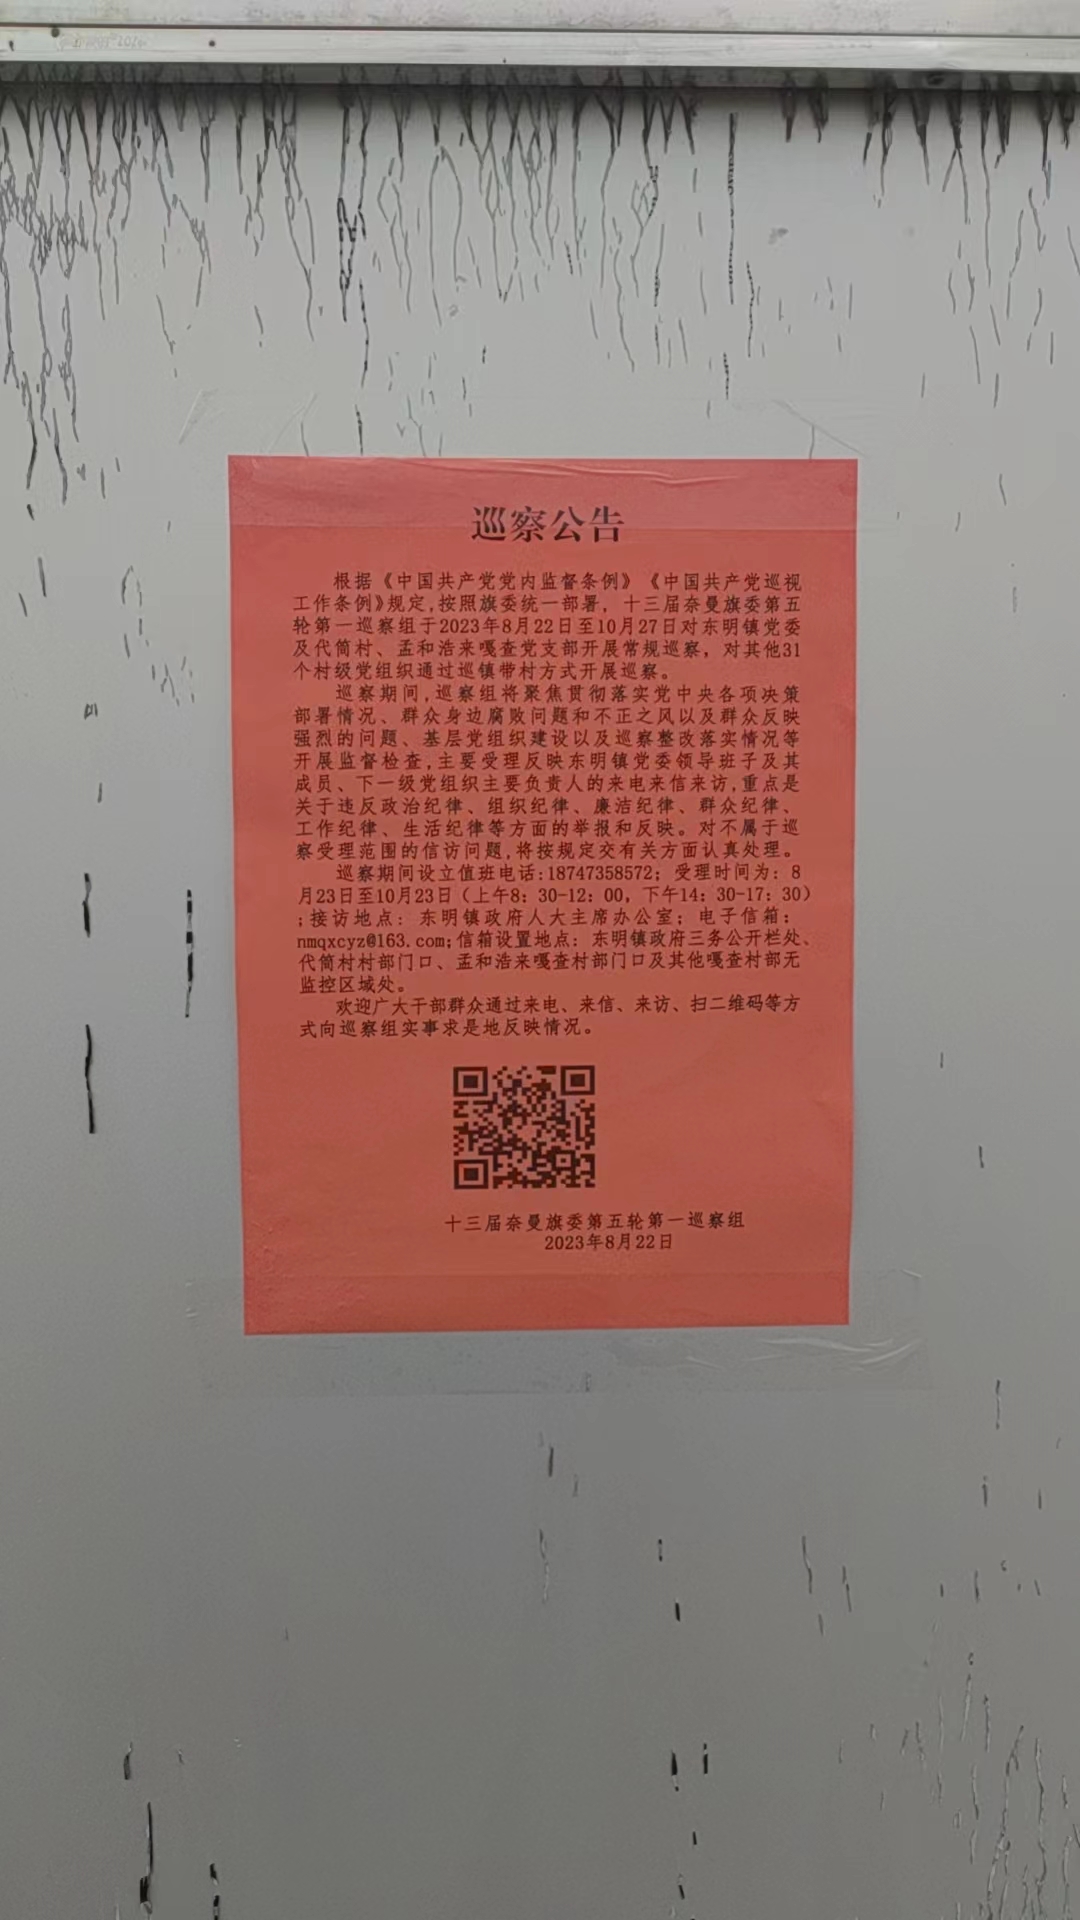 巡察公告
根据《中国共产党党内监督条例》《中国共产党巡视
工作条例》规定,按照旗委统一部署，十三届奈曼旗委第五
轮第一巡察组于2023年8月22日至10月27日对东明镇党委
及代筒村、孟和浩来嘎查党支部开展常规巡察，对其他31
个村级党组织通过巡镇带村方式开展巡察。
巡察期间,巡察组将聚焦贯彻落实党中央各项决策
部署情况、群众身边腐败问题和不正之风以及群众反映
强烈的问题、基层党组织建设以及巡察整改落实情况等
开展监督检查,主要受理反映东明镇党委领导班子及其
成员、下一级党组织主要负责人的来电来信来访,重点是
关于违反政治纪律、组织纪律、廉洁纪律、群众纪律、
工作纪律、生活纪律等方面的举报和反映。对不属于巡
察受理范围的信访问题,将按规定交有关方面认真处理。
巡察期间设立值班电话:18747358572；受理时间为：8
月23日至10月23日（上午8：30-12：00，下午14：30-17：30）
;接访地点：东明镇政府人大主席办公室；电子信箱：
nmqxcyz@163.com;信箱设置地点：东明镇政府三务公开栏处、
代筒村村部门口、孟和浩来嘎查村部门口及其他嘎查村部无
监控区域处。
欢迎广大干部群众通过来电、来信、来访、扫二维码等方
式向巡察组实事求是地反映情况。
十三届奈曼旗委第五轮第一巡察组
2023年8月22日